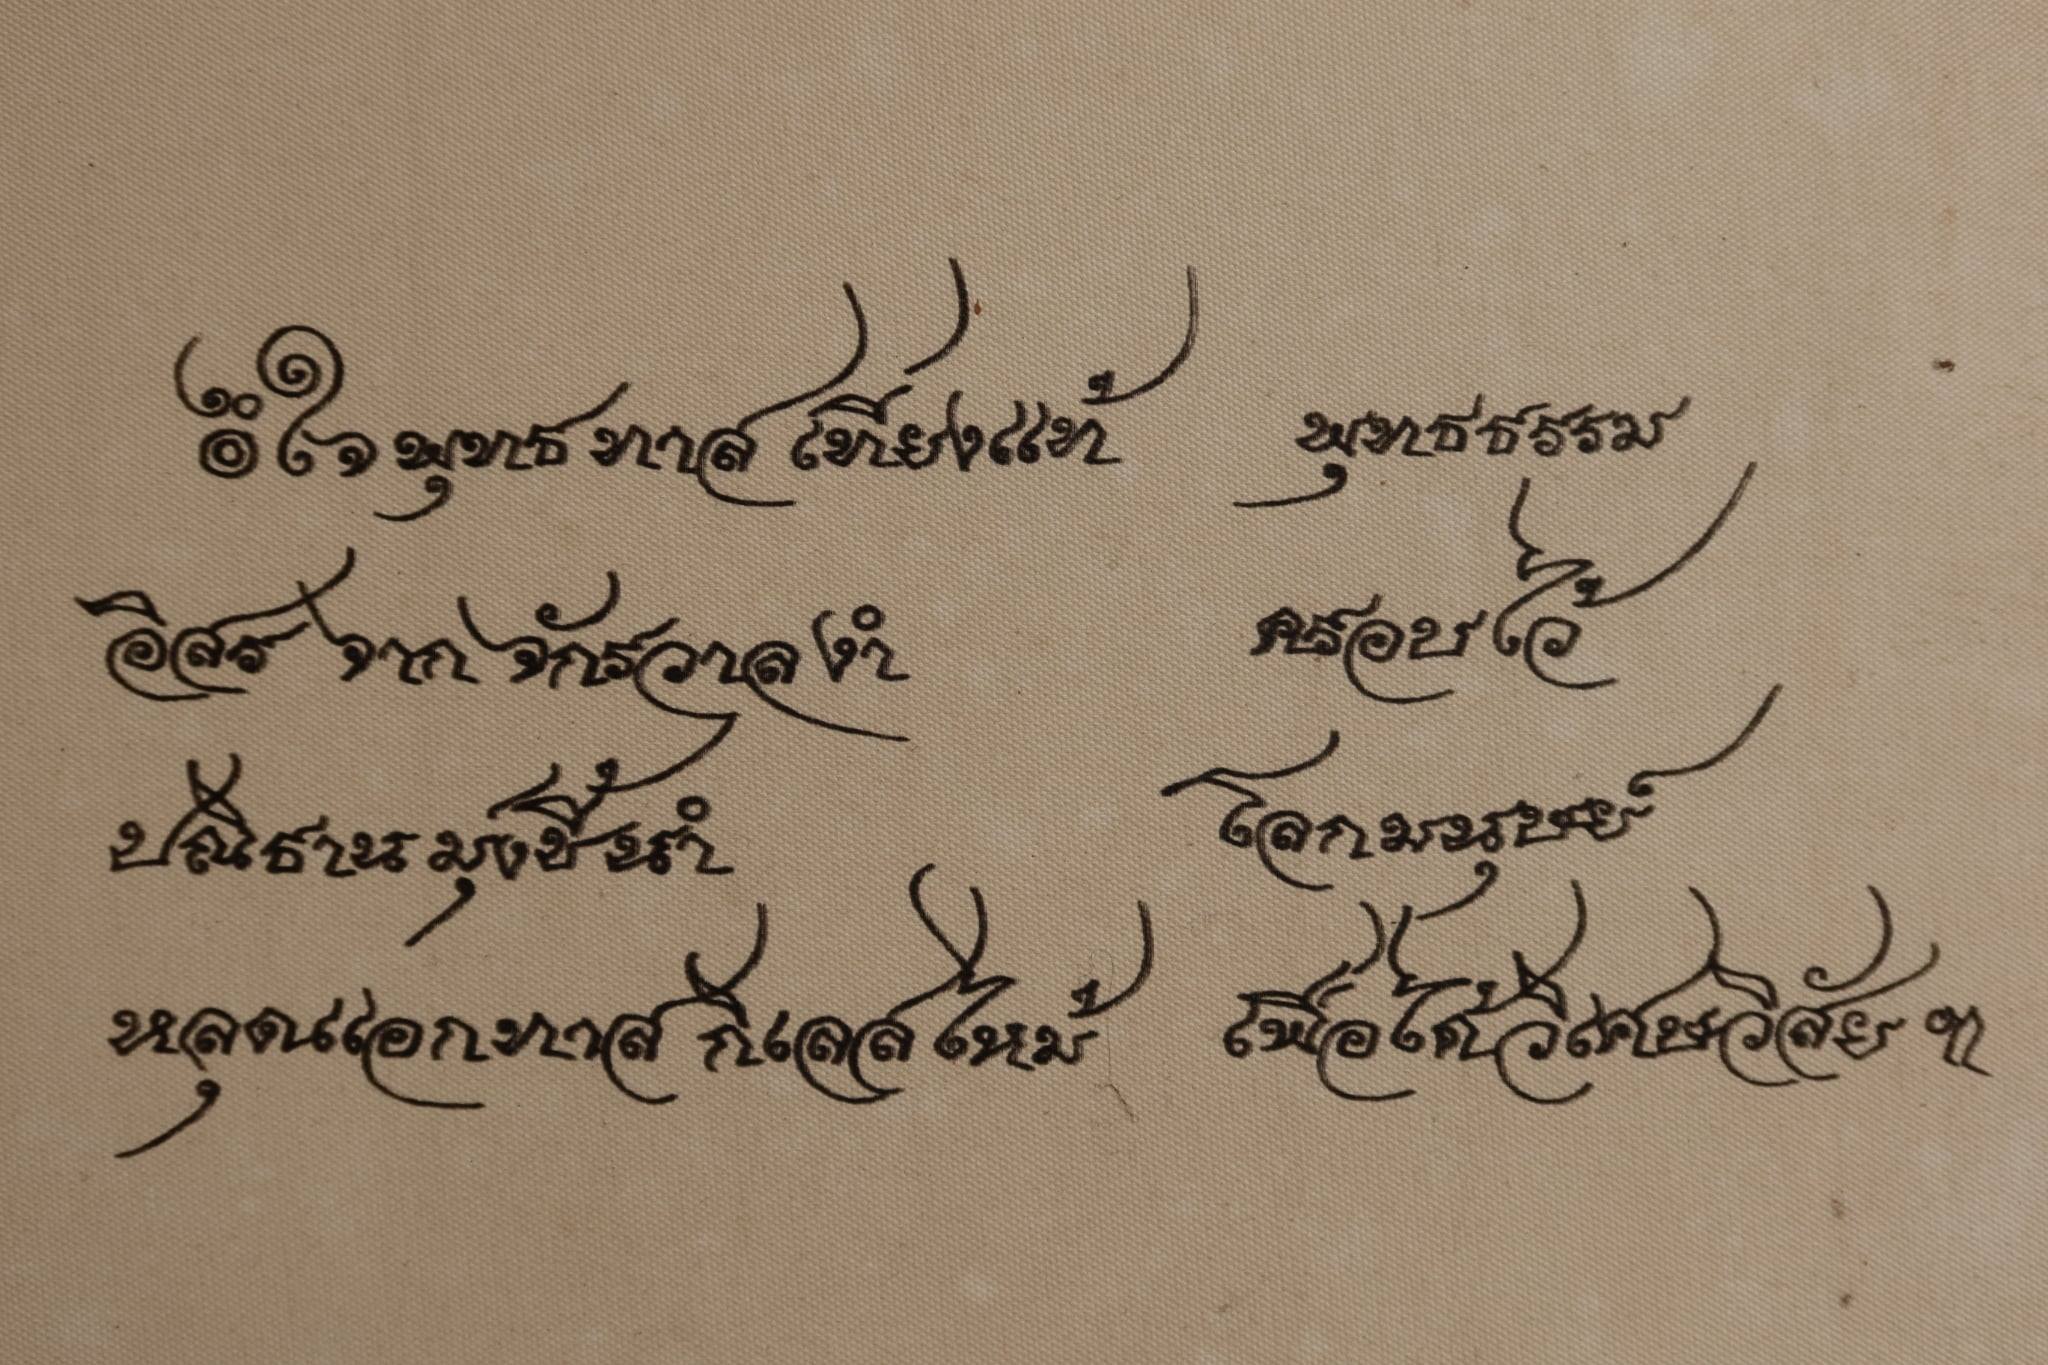 ๏ ใจพุทธทาสเที่ยงแท้ พุทธธรรม
อิสรจากจักรวาลงำ ครอบไว้
ปณิธานมุ่งชี้นำ โลกมนุษย์
หลุดแอกทาสกิเลสไหม้ เพื่อได้วิเศษวิสัย ฯ